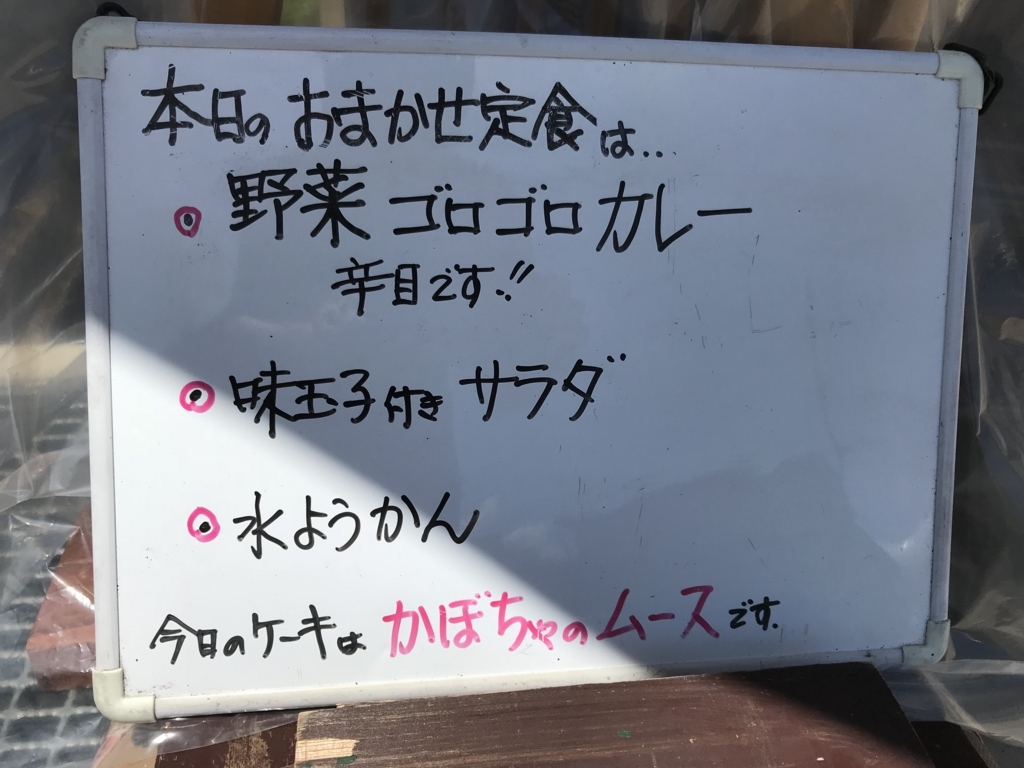 本日のおまかせ定食は..
野菜ゴロゴロカレー
辛目です!!
味玉子付きサラダ
水ようかん
今日のケーキはかぼちゃのムースです.